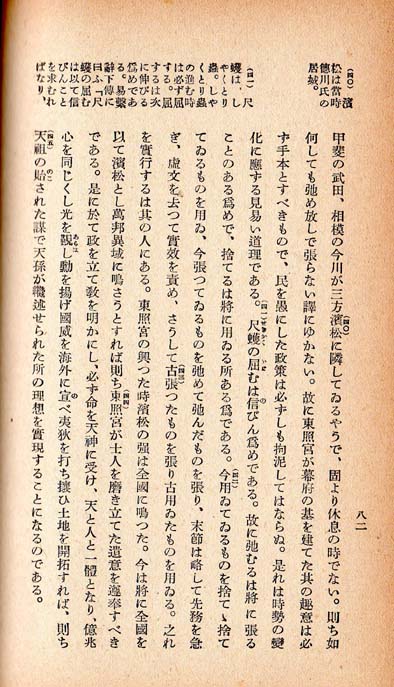 (四〇) 濱
松は當時
德川氏の
居城。
(四一) 尺
蠖は、し
やくとり
蟲。しや
くとり蟲
の進む時
は必ず屈
する。屈
するは次
に伸びる
爲めであ
る。易繫
辭下傳に
曰ふ「尺
蠖の屈む
は以て信
びんこと
を求むれ
ばなり。
八二
甲斐の武田、相模の今川が三方濱松に隣してゐるやうで、固より休息の時でない。則ち如
何しても弛め放しで張らない譯にゆかない。故に東照宮が幕府の基を建てた其の趣意は必
ず手本とすべきもので、民を愚にした政策は必ずしも拘泥してはならぬ。是れは時勢の變
化に應する見易い道理である。尺蠖の屈むは信びん爲めである。故に弛むるは將に張る
ことのある爲めで、捨てるは將に用ゐる所ある爲である。今用ゐてゐるものを捨てゝ捨て
てゐるものを用ゐ、今張つてゐるものを弛めて弛んだものを張り、末節は略して先務を急
ぎ、虛文を去つて實效を責め、さうして古張つたものを張り古用ゐたものを用ゐる。之れ
を實行するは其の人にある。東照宮の興つた時濱松の强は全國に鳴つた。今は將に全國を
以て濱松とし萬邦異域に鳴さうとすれば則ち東照宮が士人を磨き立てた遺意を遵奉すべき
である。是に於て政を立て敎を明かにし、必ず命を天神に受け、天と人と一體となり、億兆
心を同じくし光を觀し動を揚げ國威を海外に宣べ夷狄を打ち攘ひ土地を開拓すれば、則ち
天祖の貽された謀で天孫が繼述せられた所の理想を實現することになるのである。